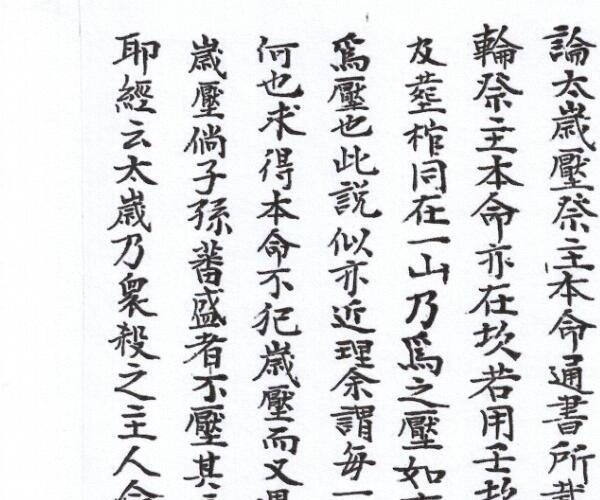 論太歲壓祭主本命通書所載
輪祭主本命亦在坎若用壬
及塟柩同在一山乃爲之壓如
爲壓也此說似亦近理余謂每一
何也求得本命不犯歲壓而又
歲壓倘子孫蕃盛者不壓其
耶經云太歲乃衆殺之主人命